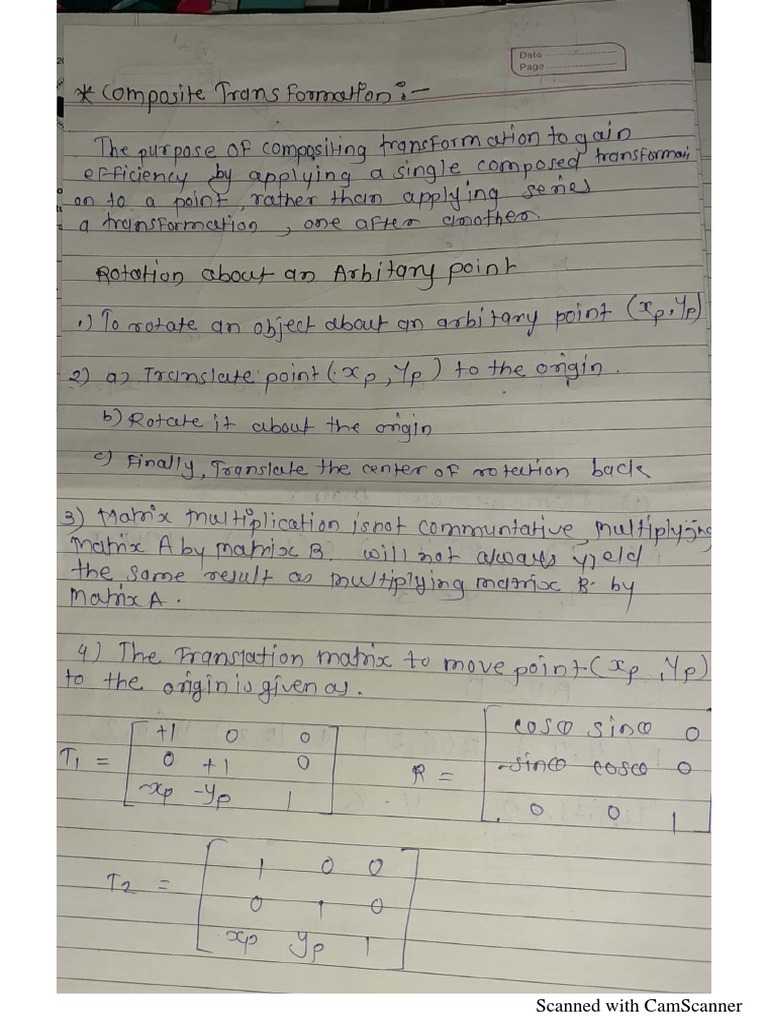 Date
Page
* Composite Transformation:-
The purpose of compositing transformation to gain
efficiency by applying a single composed transformati
on to a point, rather than applying series
a transformation, one after another.
Rotation about an Arbitary point
1) To rotate an object about an arbitary point (xp, yp)
2) a) Translate point (xp, yp) to the origin.
b) Rotate it about the origin
c) Finally, Translate the center of rotection back
3) Matrix multiplication is not communtative, multiplying
matrix A by matrix B. will not always yield
the same result as multiplying matrix B. by
matrix A.
4) The Translation matrix to move point (xp, yp)
to the origin is given as.
T1 = [ +1 0 0
0 +1 0
-xp -yp 1 ]
R = [ cosθ sinθ 0
-sinθ cosθ 0
0 0 1 ]
T2 = [ 1 0 0
0 1 0
xp yp 1 ]
Scanned with CamScanner